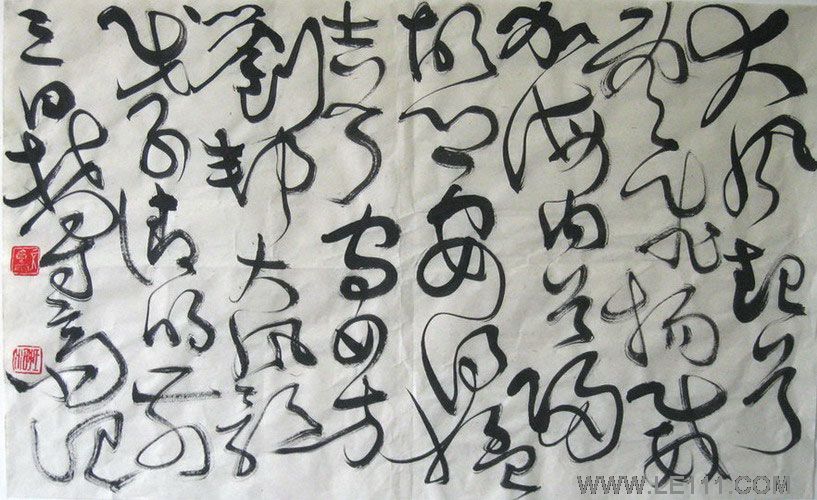 大风起兮
雲飞扬威
加海内兮归
故乡安得猛
士兮守四方
劉邦大風歌
戊子清明前
三日
WWW.LE111.COM